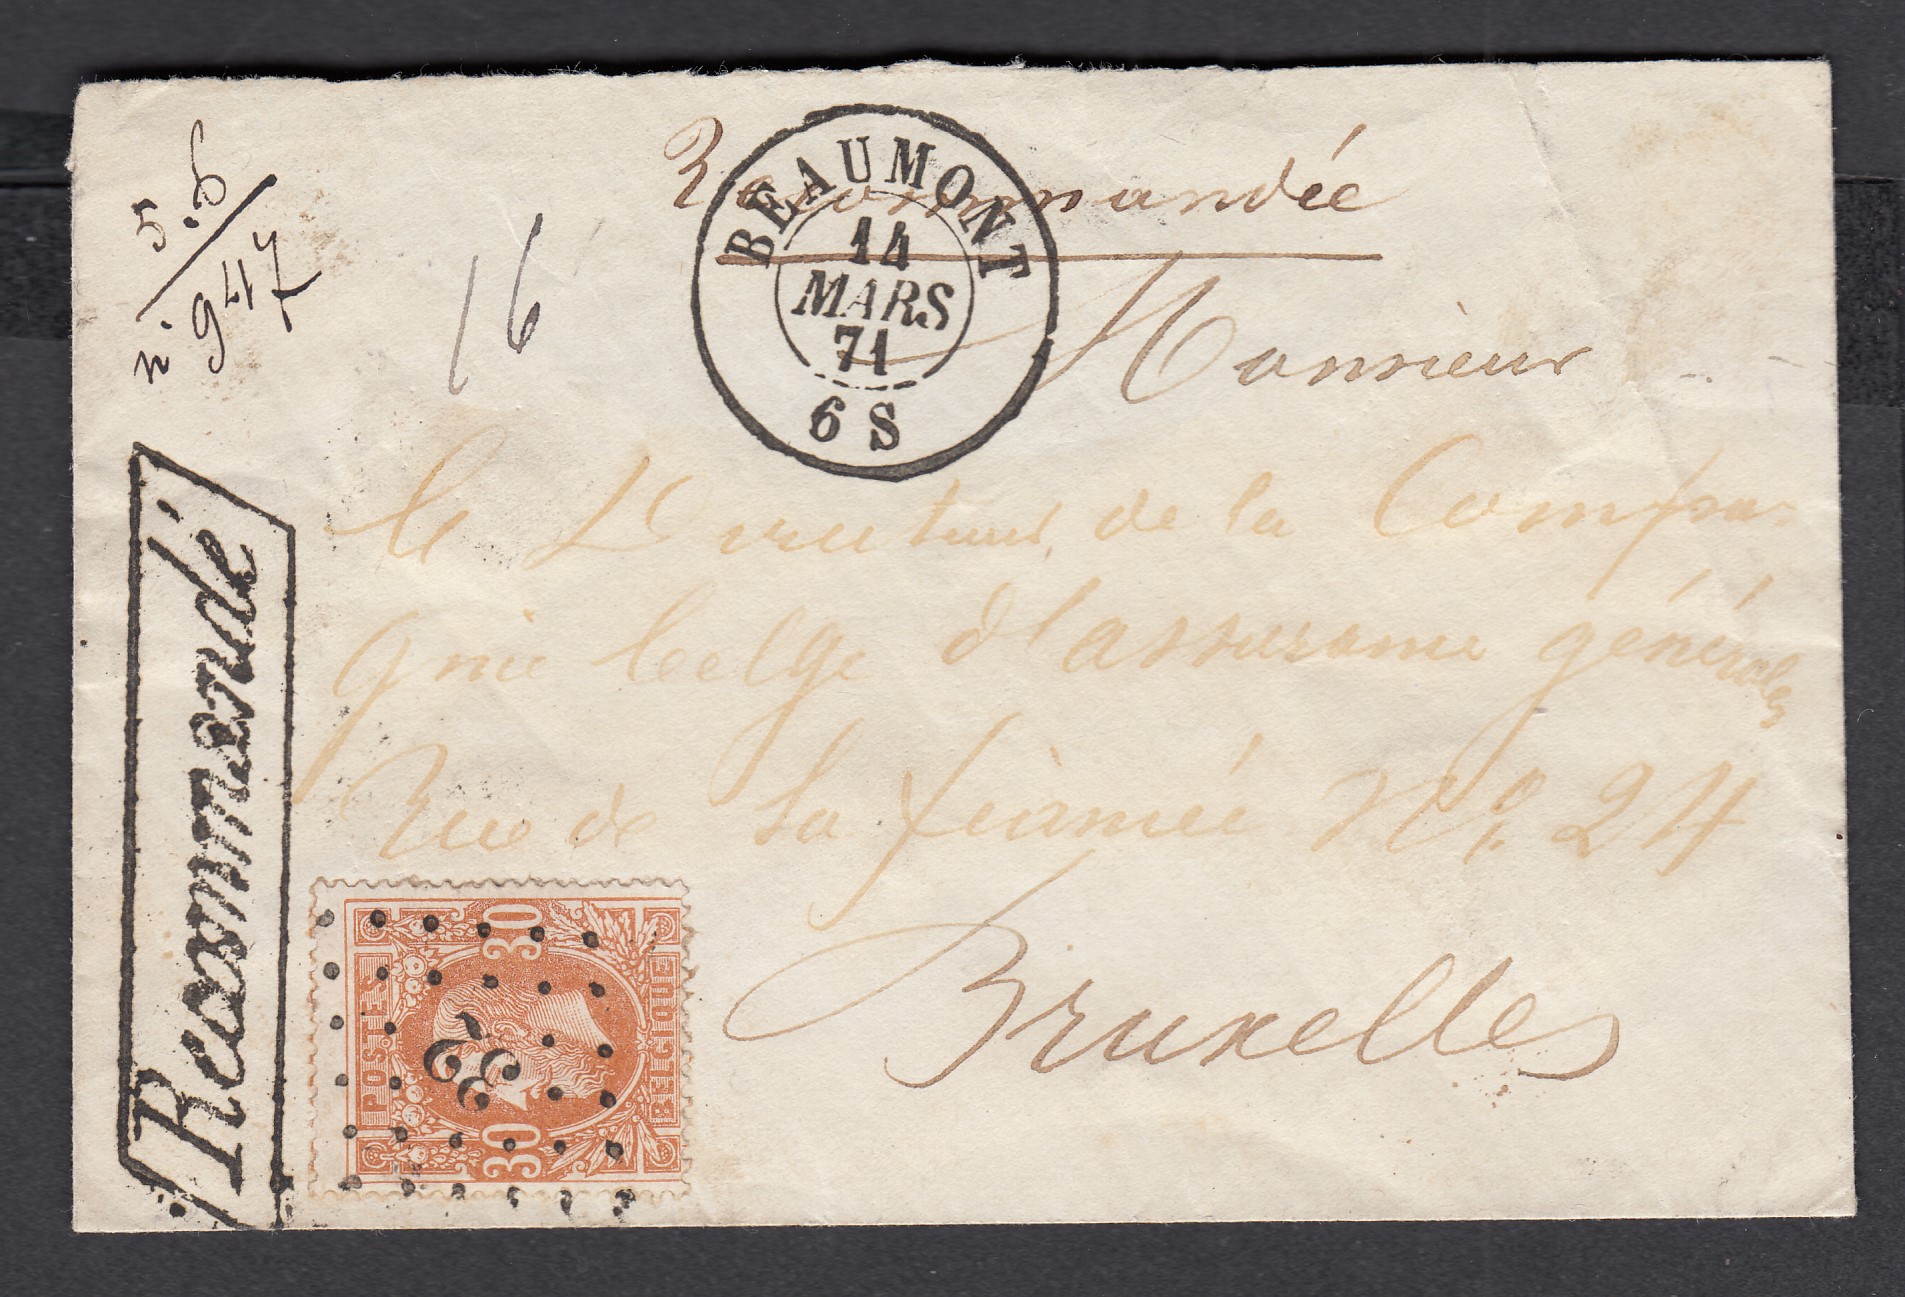 5.6
n.° 947
16
Recommandée
BEAUMONT
14
MARS
71
6 S
Monsieur
le Directeur, de la Compa-
gnie belge d'assurance générales
Rue de la N.° 24
Bruxelles
Recommandé
POSTES
30
30
BELGIQUE
32